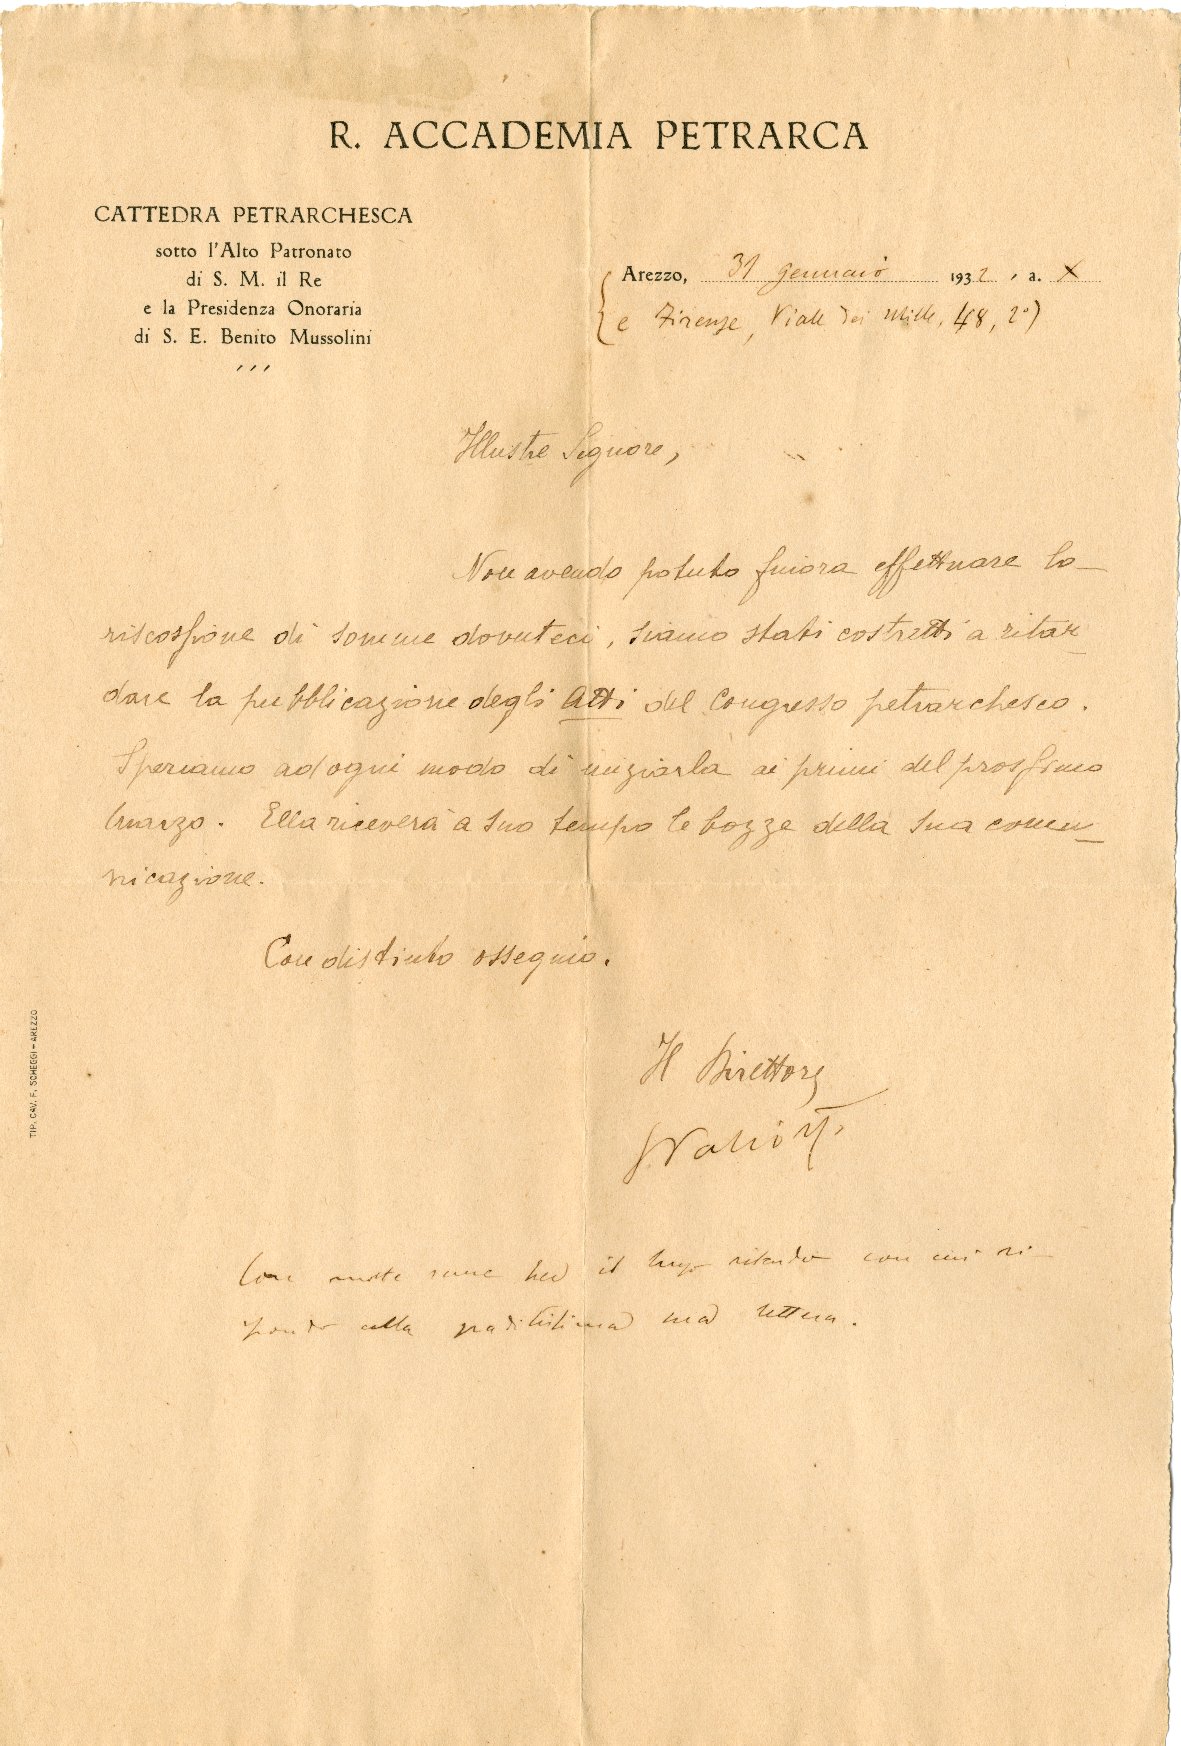 R. ACCADEMIA PETRARCA
CATTEDRA PETRARCHESCA
sotto l'Alto Patronato
di S. M. il Re
e la Presidenza Onoraria
di S. E. Benito Mussolini
Arezzo, 31 gennaio 1932, a. X
e Firenze, Viale dei Mille, 48, 2°)
Illustre Signore,
Non avendo potuto finora effettuare la
riscossione di somme dovuteci, siamo stati costretti a ritar
dare la pubblicazione degli Atti del Congresso petrarchesco.
Speriamo ad ogni modo di iniziarla ai primi del prossimo
marzo. Ella riceverà a suo tempo le bozze della sua comu
nicazione.
Con distinto ossequio.
Il Direttore
Con molte scuse per il lungo ritardo con cui ri-
spondo alla graditissima sua lettera.
TIP. CAV. F. SCHEGGI - AREZZO